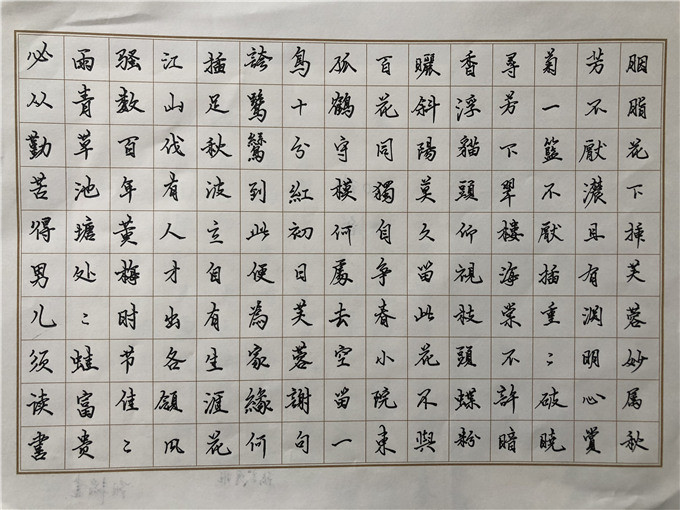 胭脂花下挿芙蓉妙属秋
芳不厭濃且有润明心賞
菊一籃不厭插重〻破曉
尋芳下翠樓海棠不許暗
香浮貓頭仰視枝頭蝶粉
曬斜陽莫久留此花不與
百花同獨自争春小院東
孤鶴守模何處去空留一
鳥十分紅初日芙蓉謝句
誇鷺鷥到此便為家緣何
插足秋波立自有生涯花
江山伐有人才出各領风
骚数百年黄梅时节佳〻
雨青草池塘处〻蛙富贵
必从勤苦得男儿须读書